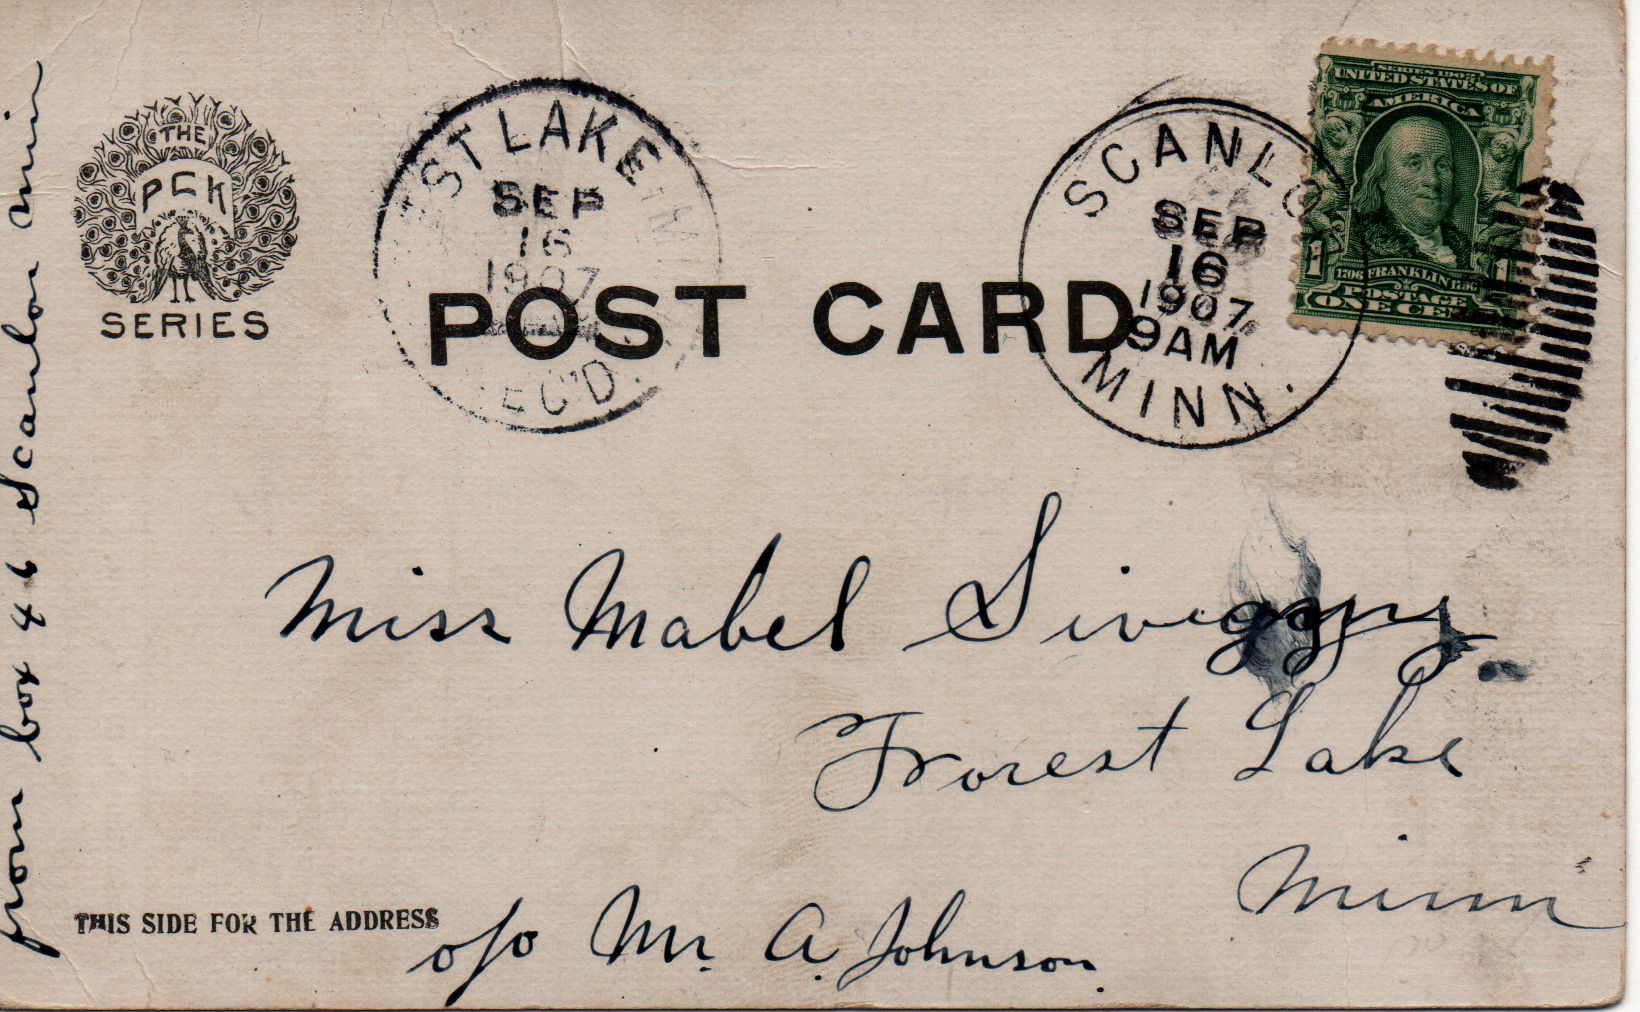 THE
PCK
SERIES
EST LAKE MIN
SEP
16
1907
EC'D.
POST CARD
SCANLO
SEP
16
1907
9AM
MINN.
SERIES 1902
UNITED STATES OF
AMERICA
1 1
1706 FRANKLIN 1790
POSTAGE
ONE CE
Miss Mabel
Forest Lake
Minn
THIS SIDE FOR THE ADDRESS
c/o Mr. A. Johnson.
from box 46 Scanlon Minn